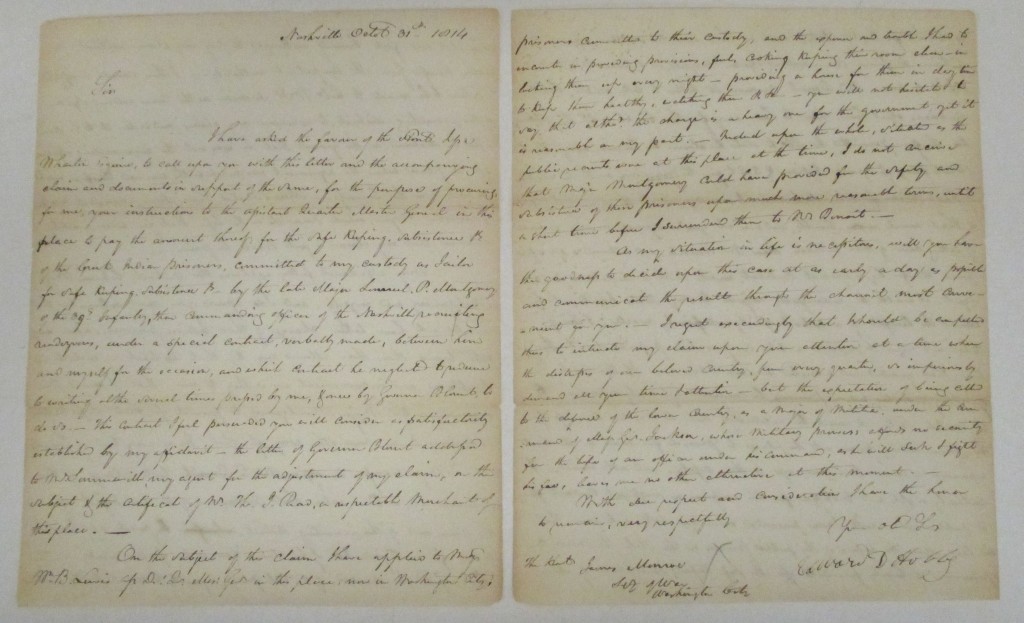 Nashville Octob 31st 1814
Sir
I have asked the favour of the
to call upon you with this letter and the accompanying
claim and documents in support of the same, for the purpose of procuring
for me, your instruction to the assistant Quarter Master General in this
place to pay the amount thereof, for the safe keeping, subsistence &
of the Creek Indian prisoners, committed to my custody as Jailor
for safe keeping subsistence & by the late Major Lemuel P. Montgomery
of the 39th Infantry, then commanding officer of the Nashville recruiting
rendezvous, under a special contract, verbally made, between him
and myself for the occasion, and which contract he neglected to reduce
to writing altho several times pressed by me, & once by Governor Blount, to
do so — This contract I feel persuaded you will consider as satisfactorily
established by my affidavit — the letter of Governor Blount addressed
to my agent for the adjustment of my claim, on the
subject & the certificate of Mr. Tho. J. Read, a respectable Merchant of
this place. —
On the subject of this claim I have applied to Majr
Wm. B. Lewis in this place, now in Washington City,
prisoners committed to their custody, and the expense and trouble I had to
encounter in providing provisions, fuel, cooking keeping their room clean — in
locking them up every night — providing a house for them in day time
to keep them healthy, watching them &c &c — you will not hesitate to
say that altho the charge is a heavy one for the government yet it
is reasonable on my part. — Indeed upon the whole, situated as the
public were at this place at the time, I do not conceive
that Major Montgomery could have provided for the safety and
subsistence of these prisoners upon much more reasonable terms, until
a short time before I surrendered them to
As my situation in life is necessitous, will you have
the goodness to decide upon this case at as early a day as possible
and communicate the result through the channel most conve-
nient to you: — I regret exceedingly that I should be compelled
thus to intrude my claim upon your attention at a time when
the distresses of our beloved Country, from every quarter, so imperiously
demand all your time & attention — but the expectation of being called
to the defence of the lower Country, as a Major of Militia, under the com-
mand of Majr Genl Jackson, whose Military prowess affords no security
for the life of an officer under his command, as he will seek & fight
his foes, leaves me no other alternative at this moment. —
With due respect and consideration I have the honor
to remain, very respectfully
Your ob St
Edward D Hobbs
The Honl James Monroe
Secy of War
Washington City